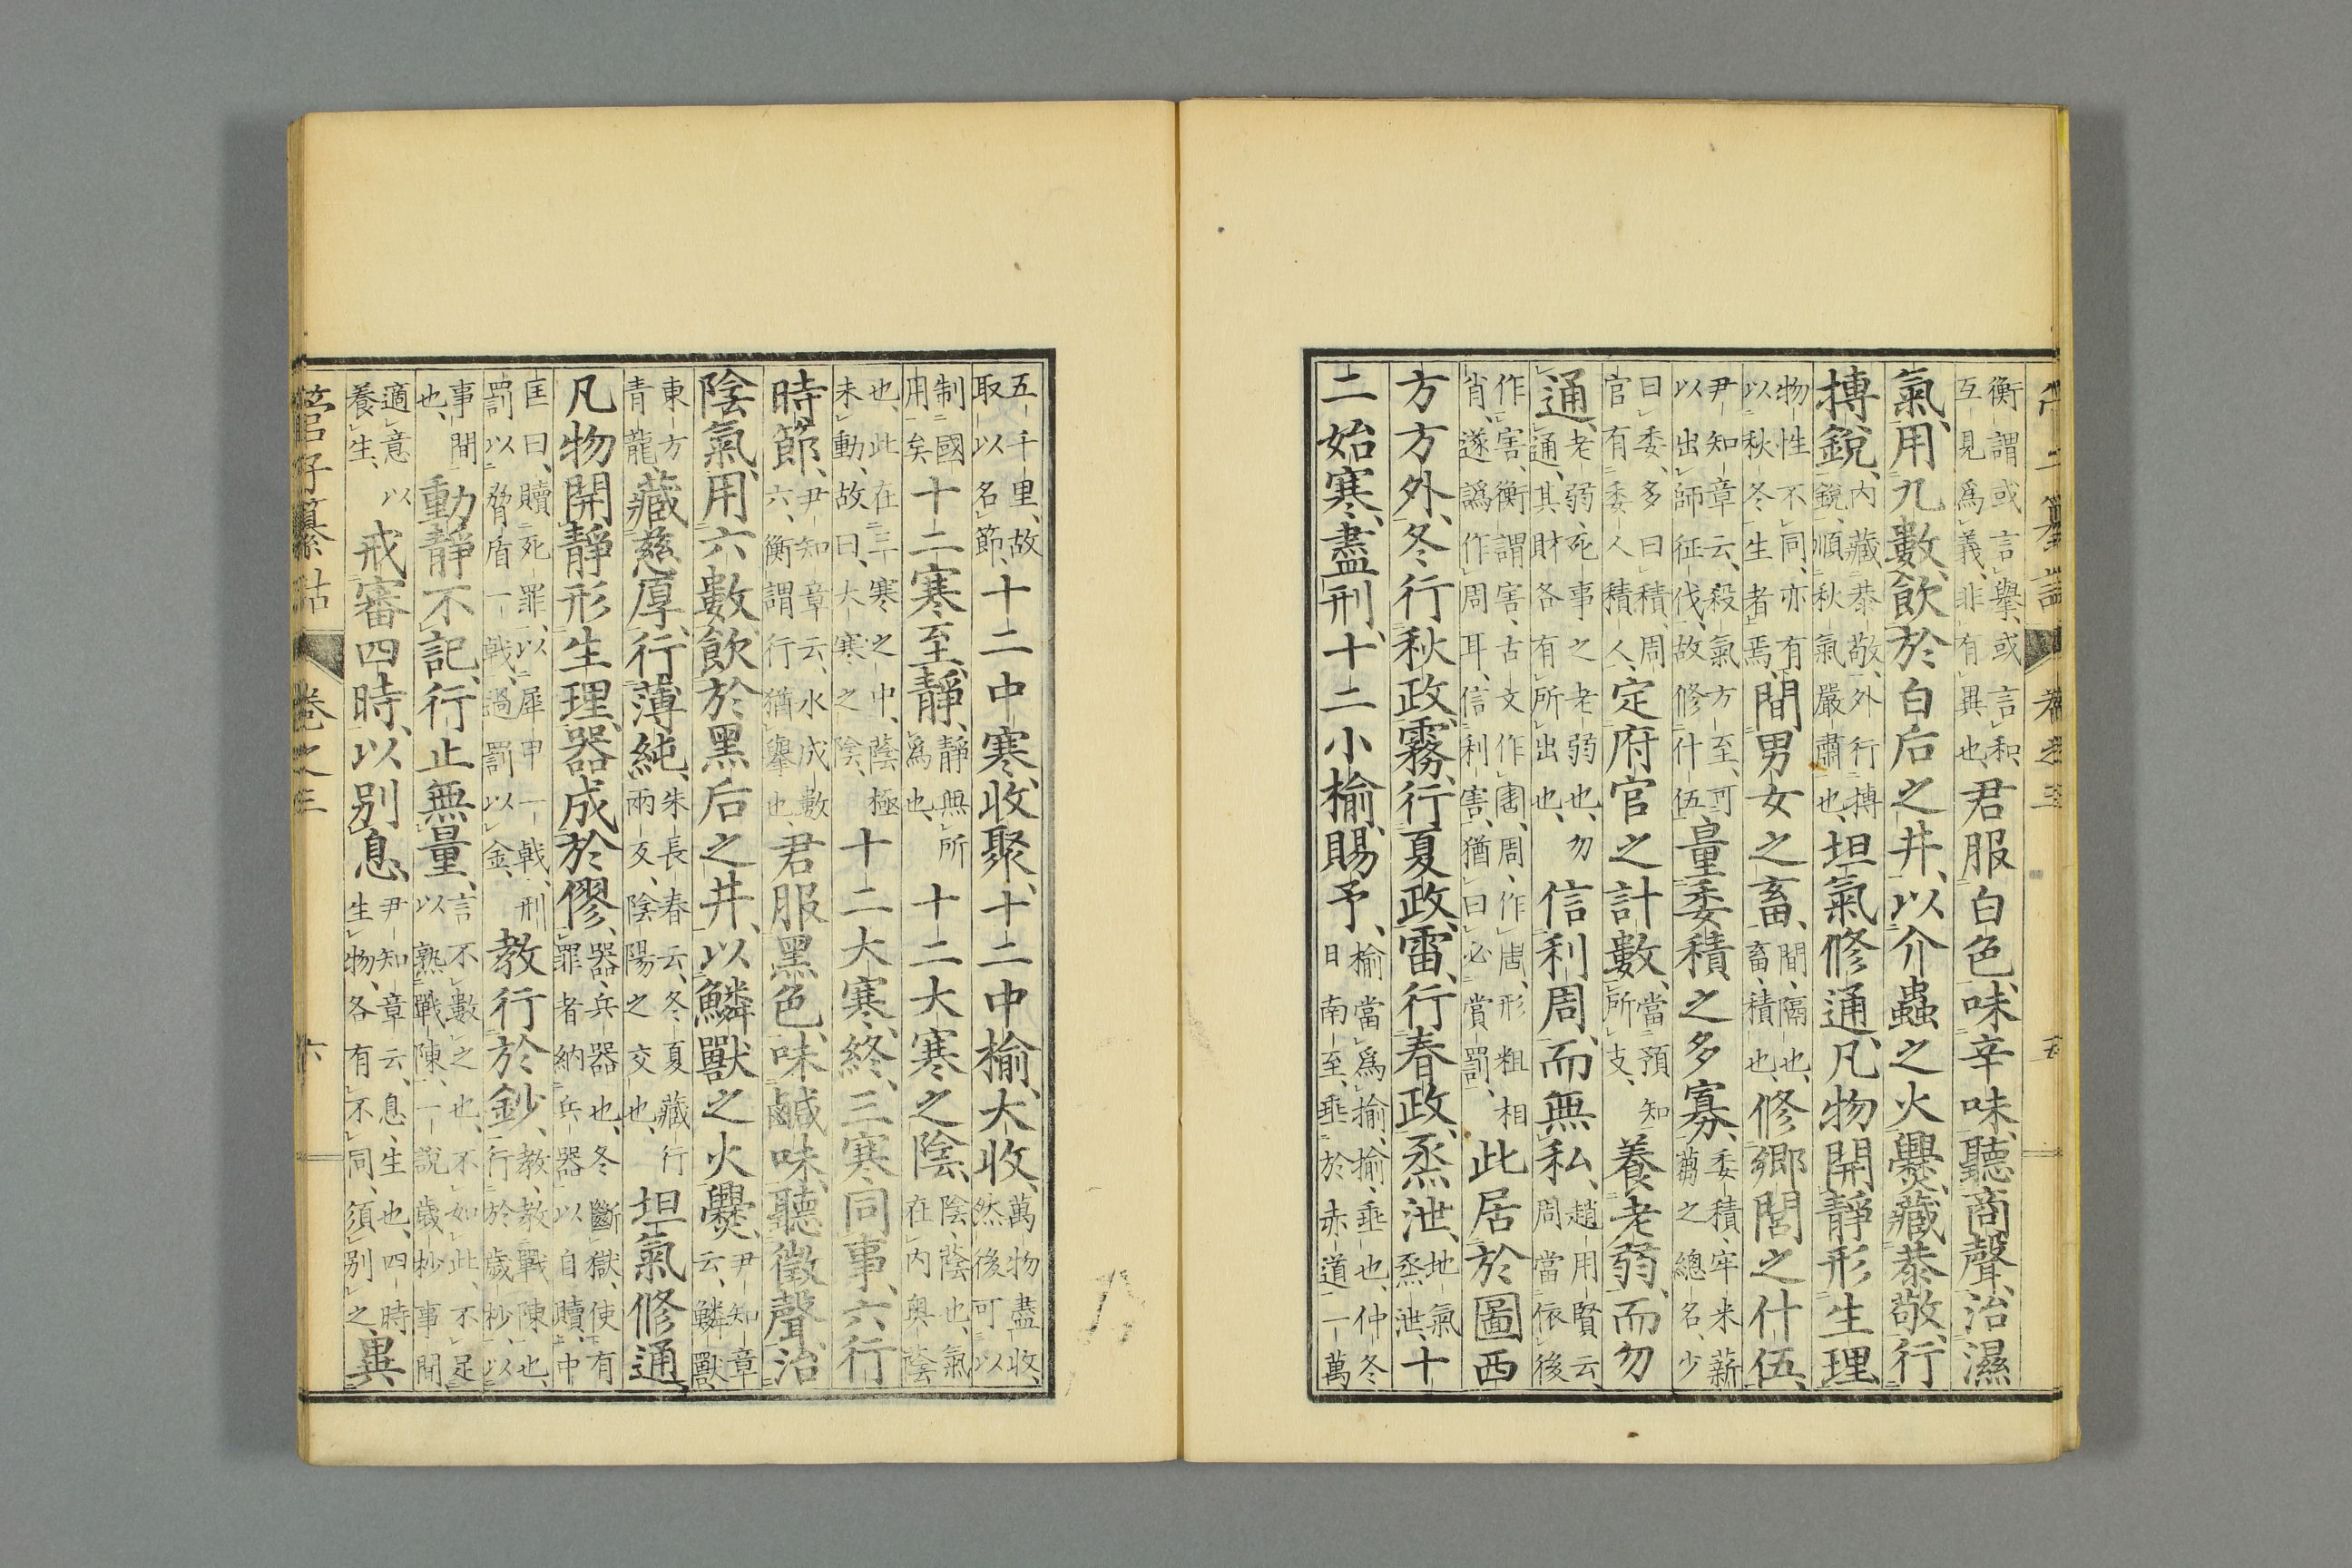 衡謂或言擧、或言和、互見爲義、非有異也、君服白色、味辛味、聽商聲、治濕
氣、用九數、飮於白后之井、以介蟲之火爨、藏恭敬、行
搏銳、內藏恭敬、外行搏銳、順秋氣嚴肅也、坦氣修通、凡物開靜形生理、
物性不同、亦有以秋冬生者焉、閒男女之畜、閒、隔也、畜、積也、修鄉閭之什伍、
尹知章云、殺氣方至、可以出師征伐、故修什伍、量委積之多寡、委積、牢米薪芻之總名、少
曰委、多曰積、周官有委人積人、定府官之計數、當預知所支、養老弱、而勿
通、老弱、死事之老弱也、勿通、其財各有所出也、信利周、而無私、趙用賢云、周當依後
作害、衡謂害、古文作、周、作、形粗相肖、遂譌作周耳、信利害、猶曰必賞罰、此居於圖西
方方外、冬行秋政、霧、行夏政、雷、行春政、烝泄、地氣烝泄、十
二始寒、盡刑、十二小榆、賜予、榆當爲揄、揄、垂也、仲冬日南至、垂於赤道一萬
五千里、故取以名節、十二中寒、收聚、十二中榆、大收、萬物盡收、然後可以
制國用矣、十二寒至、靜、靜無所爲也、十二大寒之陰、陰、蔭也、氣在內奧蔭
也、此在三寒之中、蔭極未動、故曰、大寒之陰、十二大寒、終、三寒同事、六行
時節、尹知章云、水成數六、衡謂行猶擧也、君服黑色、味鹹味、聽徵聲、治
陰氣、用六數、飮於黑后之井、以鱗獸之火爨、尹知章云、鱗獸、
東方青龍、藏慈厚、行薄純、朱長春云、冬夏藏行兩反、陰陽之交也、坦氣修通、
凡物開靜形生理、器成於僇、器、兵器也、冬斷獄、使有罪者納兵器以自贖、中
匡曰、贖死罪、以犀甲一戟、刑罰以脅盾一戟、過罰以金、教行於鈔、教、教戰陳也、行於歲杪、以
事閒也、動靜不記、行止無量、言不數之也、不如此、不足以熟戰陳、一說歲杪事閒
適意以養生、戒審四時、以別息、尹知章云、息、生也、四時生物、各有不同、須別之、異
管子纂詁 卷之三 六